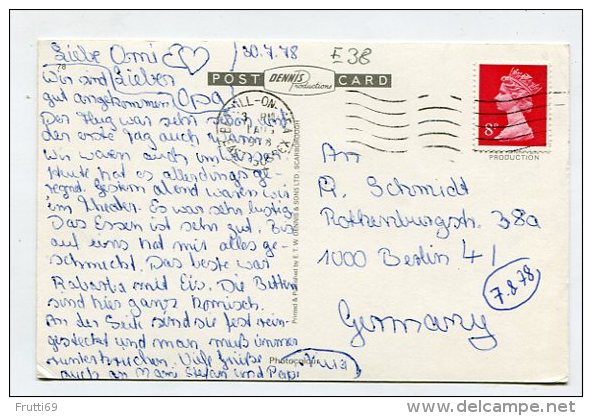 Liebe Omi 30.7.78
E 38
Wir sind Lieber
gut angekommen Opa
Der Flug war sehr schön und
der erste Tag auch warm
Wir waren auch im Wasser.
Heute hat es allerdings ge-
regnet. Gestern abend waren wir
im Theater. Es war sehr lustig.
Das Essen ist sehr gut. Bis
auf eins hat mir alles ge-
schmeckt. Das beste war
Rabarba mit Eis. Die Betten
sind hier ganz komisch.
An der Seite sind sie fest rein-
gesteckt und man muß immer
runterkriechen. Viele Grüße
auch an Mami Stefan und Papi
POST DENNIS Productions CARD
BEXHILL-ON-SEA
Printed & Published by E. T. W. DENNIS & SONS LTD. SCARBOROUGH
Photocolour
8P
PRODUCTION
An
R. Schmidt
Rothenburgstr. 38a
1000 Berlin 41
7.8.78
Germany
Frutti69
www.delcampe.net